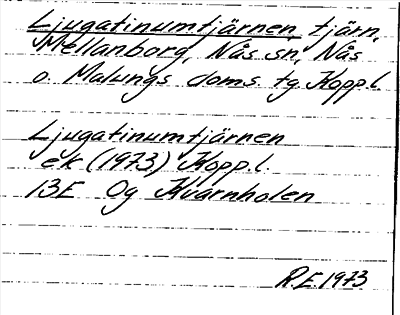 Ljugatinumtjärnen tjärn,
Mellanborg, Nås sn, Nås
o. Malungs doms tg Kopp.l.
Ljugatinumtjärnen
ek (1973) Kopp.l.
13E 0g Kvarnholen
R.E. 1973